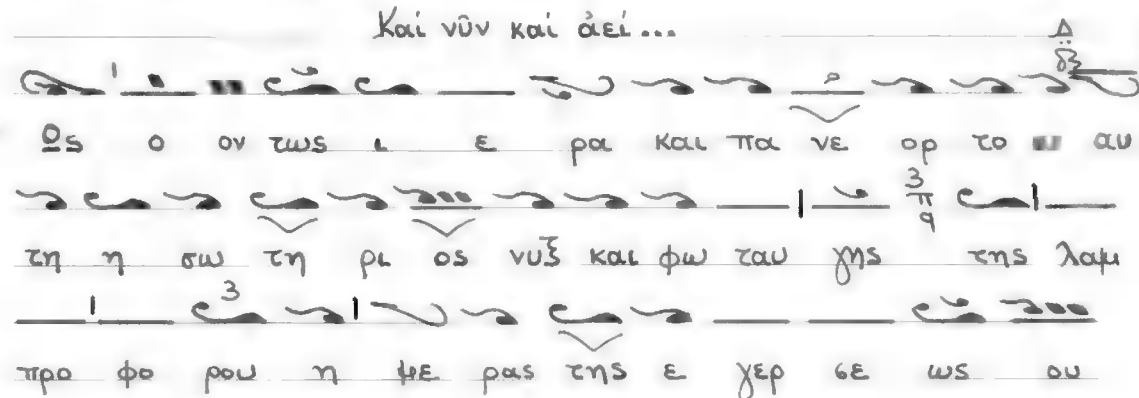 Καί νῦν καί ἀεί...
Ως ο ον τως ι ε ρα και πα νε ορ το αυ
τη η σω τη ρι ος νυξ και φω ταυ γης της λαμ
προ φο ρου η με ρας της ε γερ σε ως ου